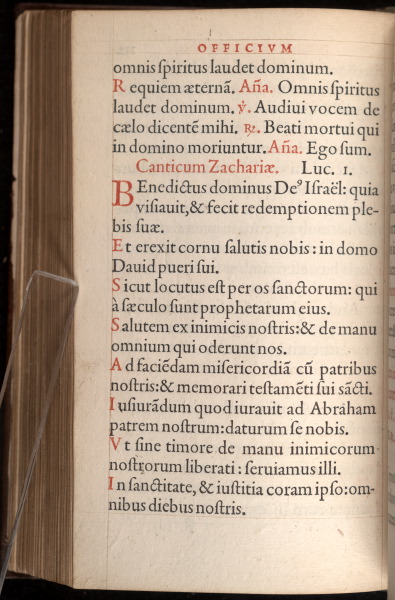 OFFICIVM
omnis ſpiritus laudet dominum.
Requiem æternã. Aña. Omnis ſpiritus
laudet dominum. ℣. Audiui vocem de
cælo dicentẽ mihi. ℟. Beati mortui qui
in domino moriuntur. Aña. Ego ſum.
Canticum Zachariæ. Luc. 1.
BEnedictus dominus Deꝰ Iſraël: quia
viſiauit,& fecit redemptionem ple-
bis ſuæ.
Et erexit cornu ſalutis nobis: in domo
Dauid pueri ſui.
Sicut locutus eſt per os ſanctorum: qui
à ſæculo ſunt prophetarum eius.
Salutem ex inimicis noſtris:& de manu
omnium qui oderunt nos.
Ad faciẽdam miſericordiã cũ patribus
noſtris:& memorari teſtamẽti ſui sãcti.
Iuſiurãdum quod iurauit ad Abraham
patrem noſtrum: daturum ſe nobis.
Vt ſine timore de manu inimicorum
noſtrorum liberati: ſeruiamus illi.
In ſanctitate, & iuſtitia coram ipſo: om-
nibus diebus noſtris.